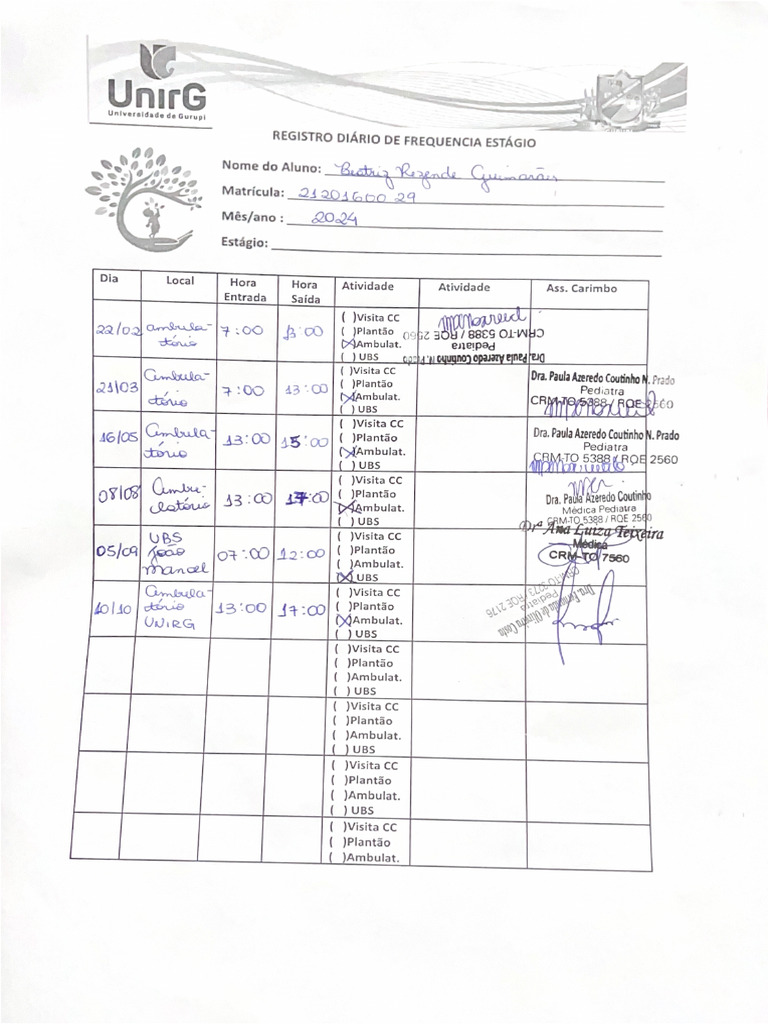 UnirG
Universidade de Gurupi
REGISTRO DIÁRIO DE FREQUENCIA ESTÁGIO
Nome do Aluno: Beatriz Rezende Guimarães
Matrícula: 2120160029
Mês/ano : 2024
Estágio:
Dia Local Hora Entrada Hora Saída Atividade Atividade Ass. Carimbo
22/02 ambula-tório 7:00 13:00
( )Visita CC
( )Plantão
(X)Ambulat.
( ) UBS
Dra. Paula Azeredo Coutinho N. Prado
Pediatra
CRM-TO 5388 / RQE 2560
21/03 Ambula-tório 7:00 13:00
( )Visita CC
( )Plantão
(X)Ambulat.
( ) UBS
Dra. Paula Azeredo Coutinho N. Prado
Pediatra
CRM-TO 5388 / RQE 2560
16/05 Ambula-tório 13:00 15:00
( )Visita CC
( )Plantão
(X)Ambulat.
( ) UBS
Dra. Paula Azeredo Coutinho N. Prado
Pediatra
CRM-TO 5388 / RQE 2560
08/08 Ambu-latório 13:00 17:00
( )Visita CC
( )Plantão
(X)Ambulat.
( ) UBS
Dra. Paula Azeredo Coutinho
Médica Pediatra
CRM-TO 5388 / RQE 2560
05/09 UBS João Manoel 07:00 12:00
( )Visita CC
( )Plantão
( )Ambulat.
(X) UBS
Drª Ana Luiza Teixeira
Médica
CRM-TO 7560
10/10 Ambula-tório UNIRG 13:00 17:00
( )Visita CC
( )Plantão
(X)Ambulat.
( ) UBS
Pediatra
RQE 2176
( )Visita CC
( )Plantão
( )Ambulat.
( ) UBS
( )Visita CC
( )Plantão
( )Ambulat.
( ) UBS
( )Visita CC
( )Plantão
( )Ambulat.
( ) UBS
( )Visita CC
( )Plantão
( )Ambulat.